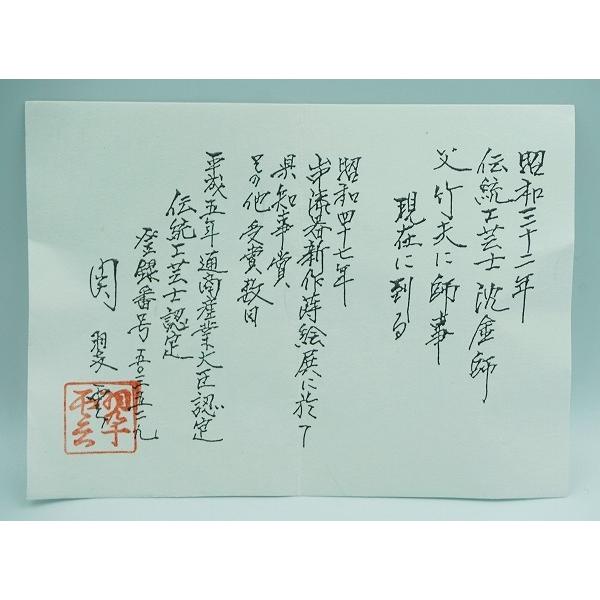 昭和三十二年
伝統工芸士沈金師
父竹夫に師事
現在に到る
昭和四十七年
漆器新作蒔絵展に於て
県知事賞
その他多賞数回
平成五年通商産業大臣認定
伝統工芸士認定
登録番号
関